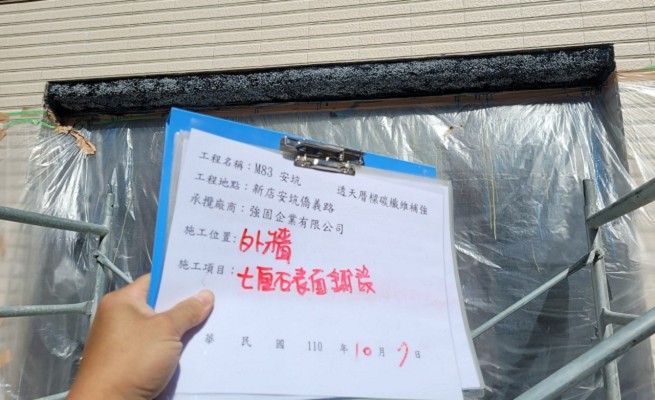 工程名稱：M83 安坑　透天厝樑碳纖維補強
工程地點：新店安坑僑義路
承攬廠商：強固企業有限公司
施工位置：外牆
施工項目：七厘石表面鋪
華 民 國 110 年 10 月 日